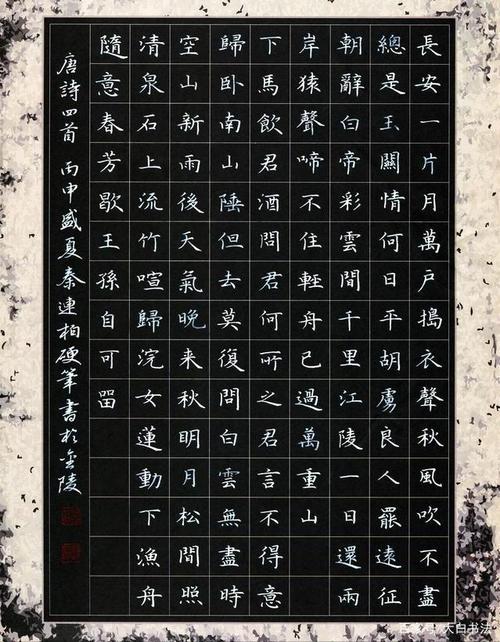 長安一片月萬戶搗衣聲秋風吹不盡
總是玉關情何日平胡虜良人罷遠征
朝辭白帝彩雲間千里江陵一日還兩
岸猿聲啼不住輕舟已過萬重山
下馬飲君酒問君何所之君言不得意
歸臥南山陲但去莫復問白雲無盡時
空山新雨後天氣晚来秋明月松間照
清泉石上流竹喧歸浣女蓮動下漁舟
隨意春芳歇王孫自可留
唐詩四首 丙申盛夏秦連柏硬筆書於金陵
大白书法